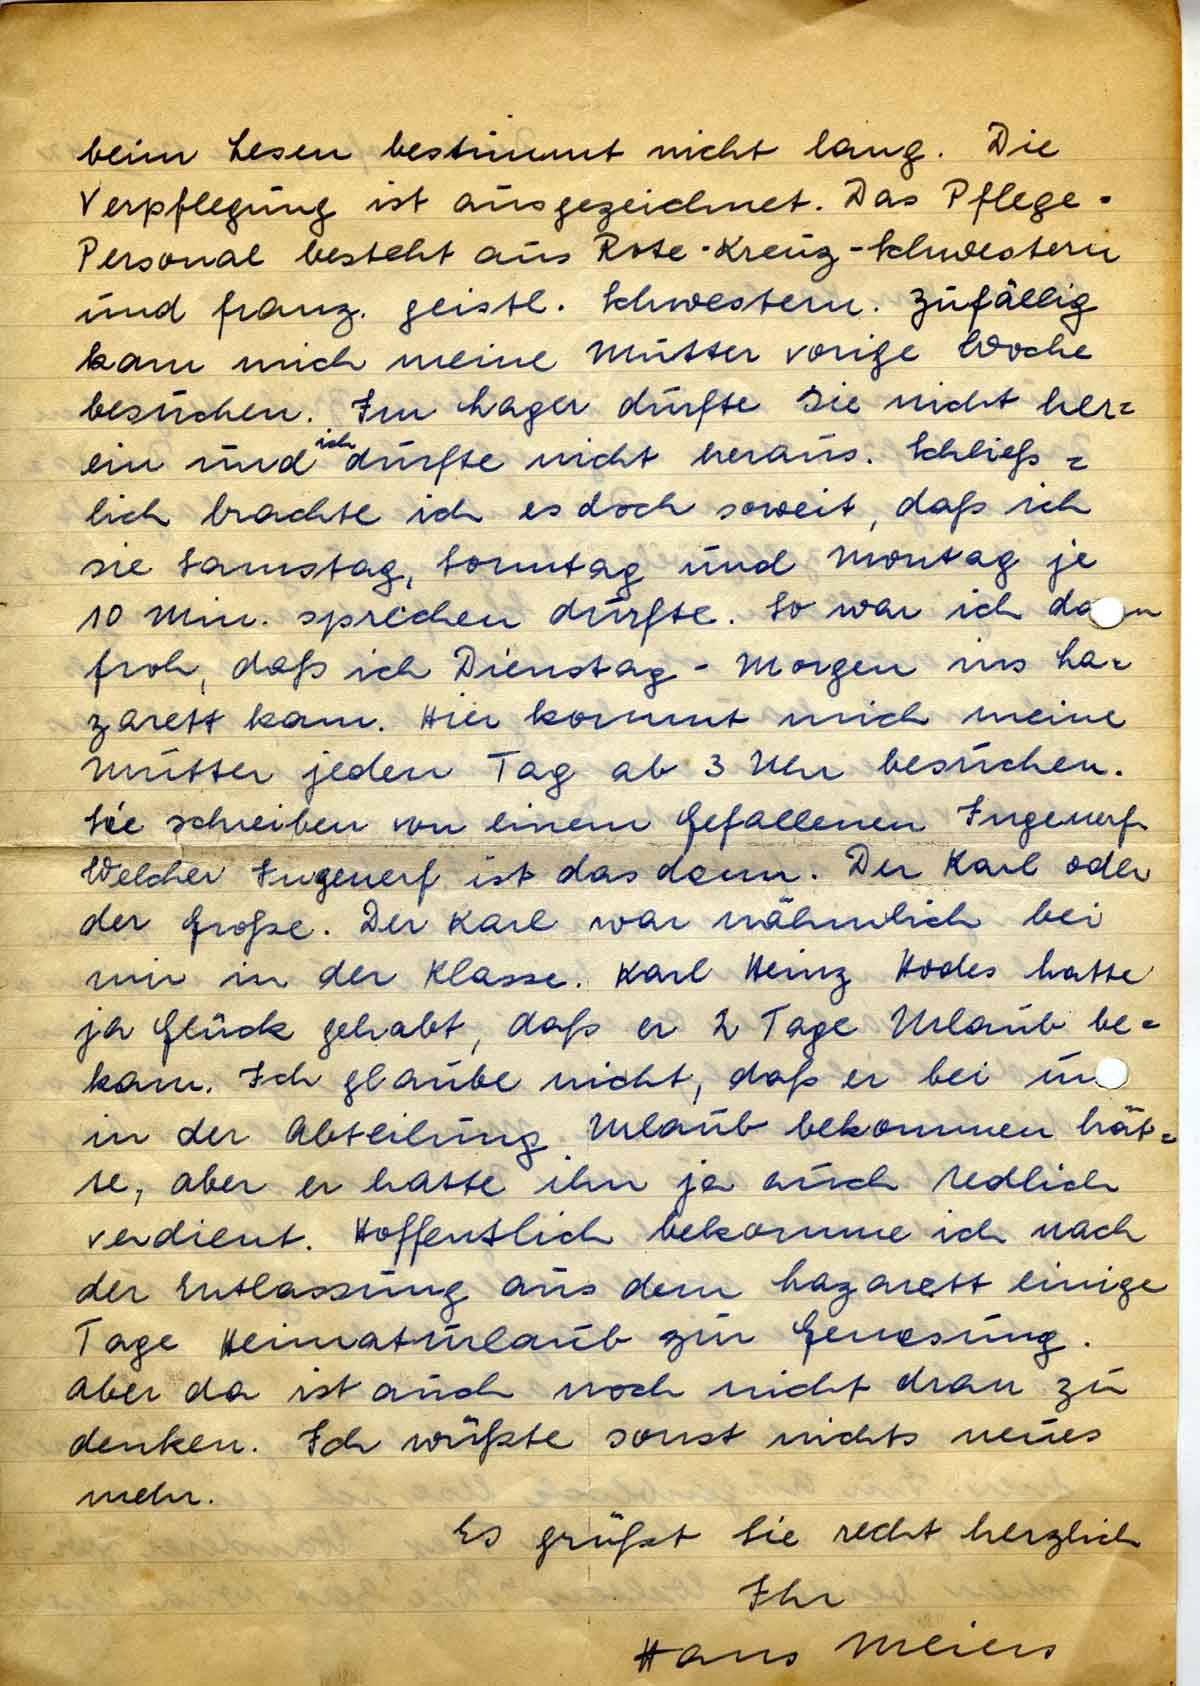 beim Lesen bestimmt nicht lang. Die
Verpflegung ist ausgezeichnet. Das Pflege-
Personal besteht aus Rote-Kreuz-Schwestern
und franz. geistl. Schwestern. Zufällig
kam mich meine Mutter vorige Woche
besuchen. Im Lager durfte Sie nicht her=
ein und ich durfte nicht heraus. Schließ=
lich brachte ich es doch soweit, daß ich
sie Samstag, Sonntag und Montag je
10 Min. sprechen durfte. So war ich dann
froh, daß ich Dienstag-Morgen ins La=
zarett kam. Hier kommt mich meine
Mutter jeden Tag ab 3 Uhr besuchen.
Sie schreiben von einem Gefallenen Ingenerf
Welcher Ingenerf ist das denn. Der Karl oder
der Große. Der Karl war nähmlich bei
mir in der Klasse. Karl Heinz Hodes hatte
ja Glück gehabt, daß er 2 Tage Urlaub be=
kam. Ich glaube nicht, daß er bei un
in der Abteilung Urlaub bekommen hät=
te, aber er hatte ihn ja auch redlich
verdient. Hoffentlich bekomme ich nach
der Entlassung aus dem Lazarett einige
Tage Heimaturlaub zur Genesung.
aber da ist auch noch nicht dran zu
denken. Ich wüßte sonst nichts neues
mehr.
Es grüßt Sie recht herzlich
Ihr
Hans Meiers